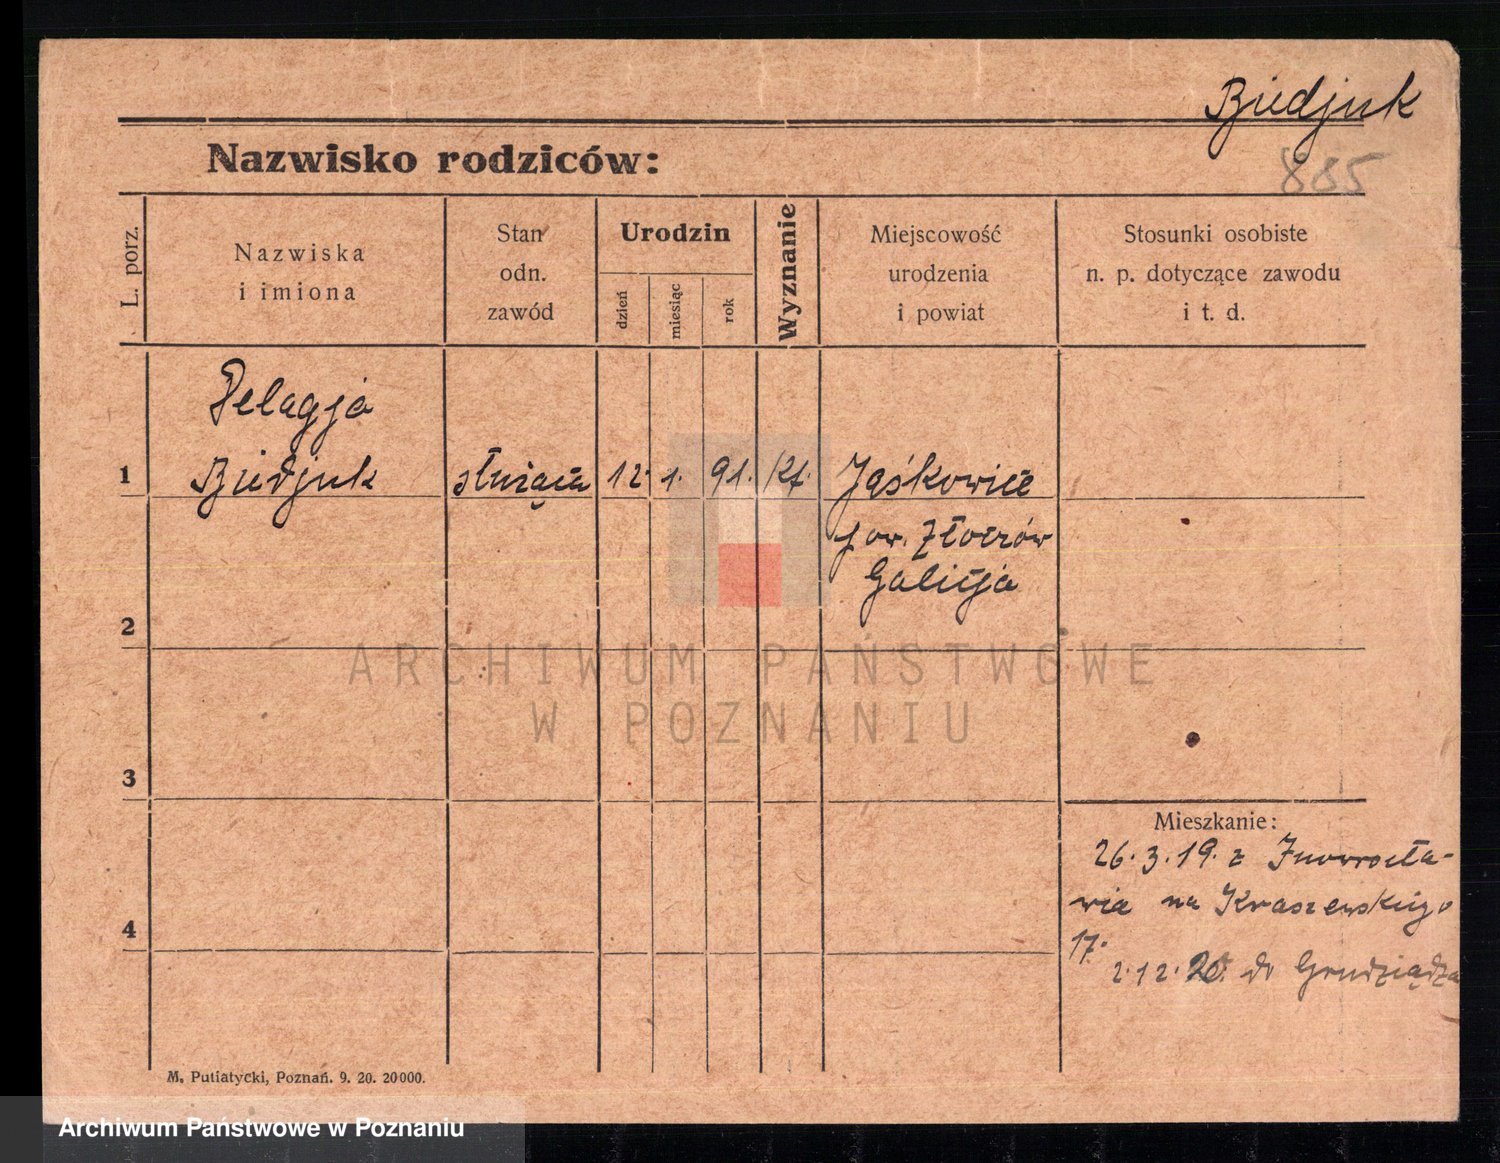 Biedjuk
885
Nazwisko rodziców:
L. porz.
Nazwiska
i imiona
Stan
odn.
zawód
Urodzin
dzień
miesiąc
rok
Wyznanie
Miejscowość
urodzenia
i powiat
Stosunki osobiste
n. p. dotyczące zawodu
i t. d.
Pelagja
1 Biedjuk służąca 12. 1. 91. Kt. Jaśkowice
pow. Złoczów
Galicja
2
3
4
ARCHIWUM PAŃSTWOWE
W POZNANIU
Mieszkanie:
26.3.19. z Inowrocła-
wia na Kraszewskiego
17.
2.12.20. do Grudziądza
M. Putiatycki, Poznań. 9. 20. 20000.
Archiwum Państwowe w Poznaniu